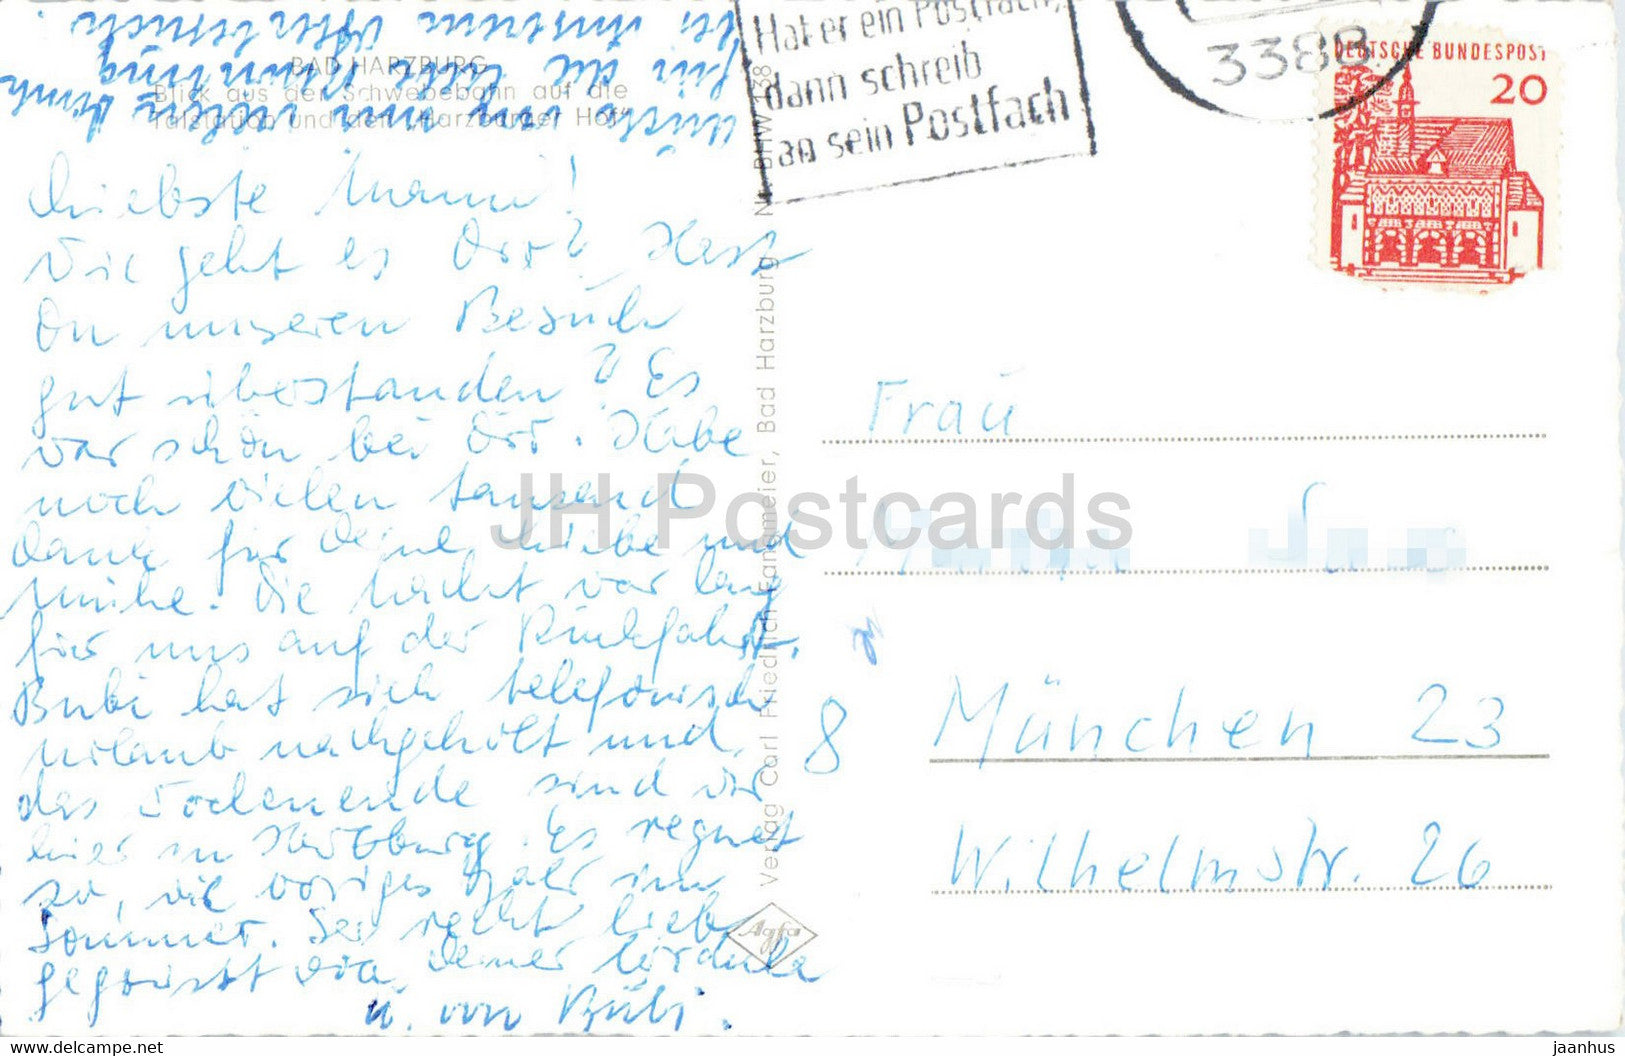 BAD HARZBURG
Blick aus der Schwebebahn auf die
Talstation und den "Harzburger Hof"
Liebste Mami!
Wie geht es Dir? Hast
Du unseren Besuch
gut überstanden? Es
war schön bei Dir. Habe
noch vielen tausend
Dank für Deine Liebe und
Mühe. Die Nacht war lang
für uns auf der Rückfahrt.
Bubi hat sich telefonisch
Urlaub nachgeholt und
das Wochenende sind wir
hier in Harzburg. Es regnet
so, wie voriges Jahr im
Sommer. Sei recht lieb
gegrüsst von Deiner Cordula
u. von Bubi.
für die
Verlag Carl Friedrich Fangmeier, Bad Harzburg
Hat er ein Postfach,
dann schreib
an sein Postfach
3388
DEUTSCHE BUNDESPOST
20
Frau
8 München 23
Wilhelmstr. 26
Agfa
JH Postcards
jaanhus